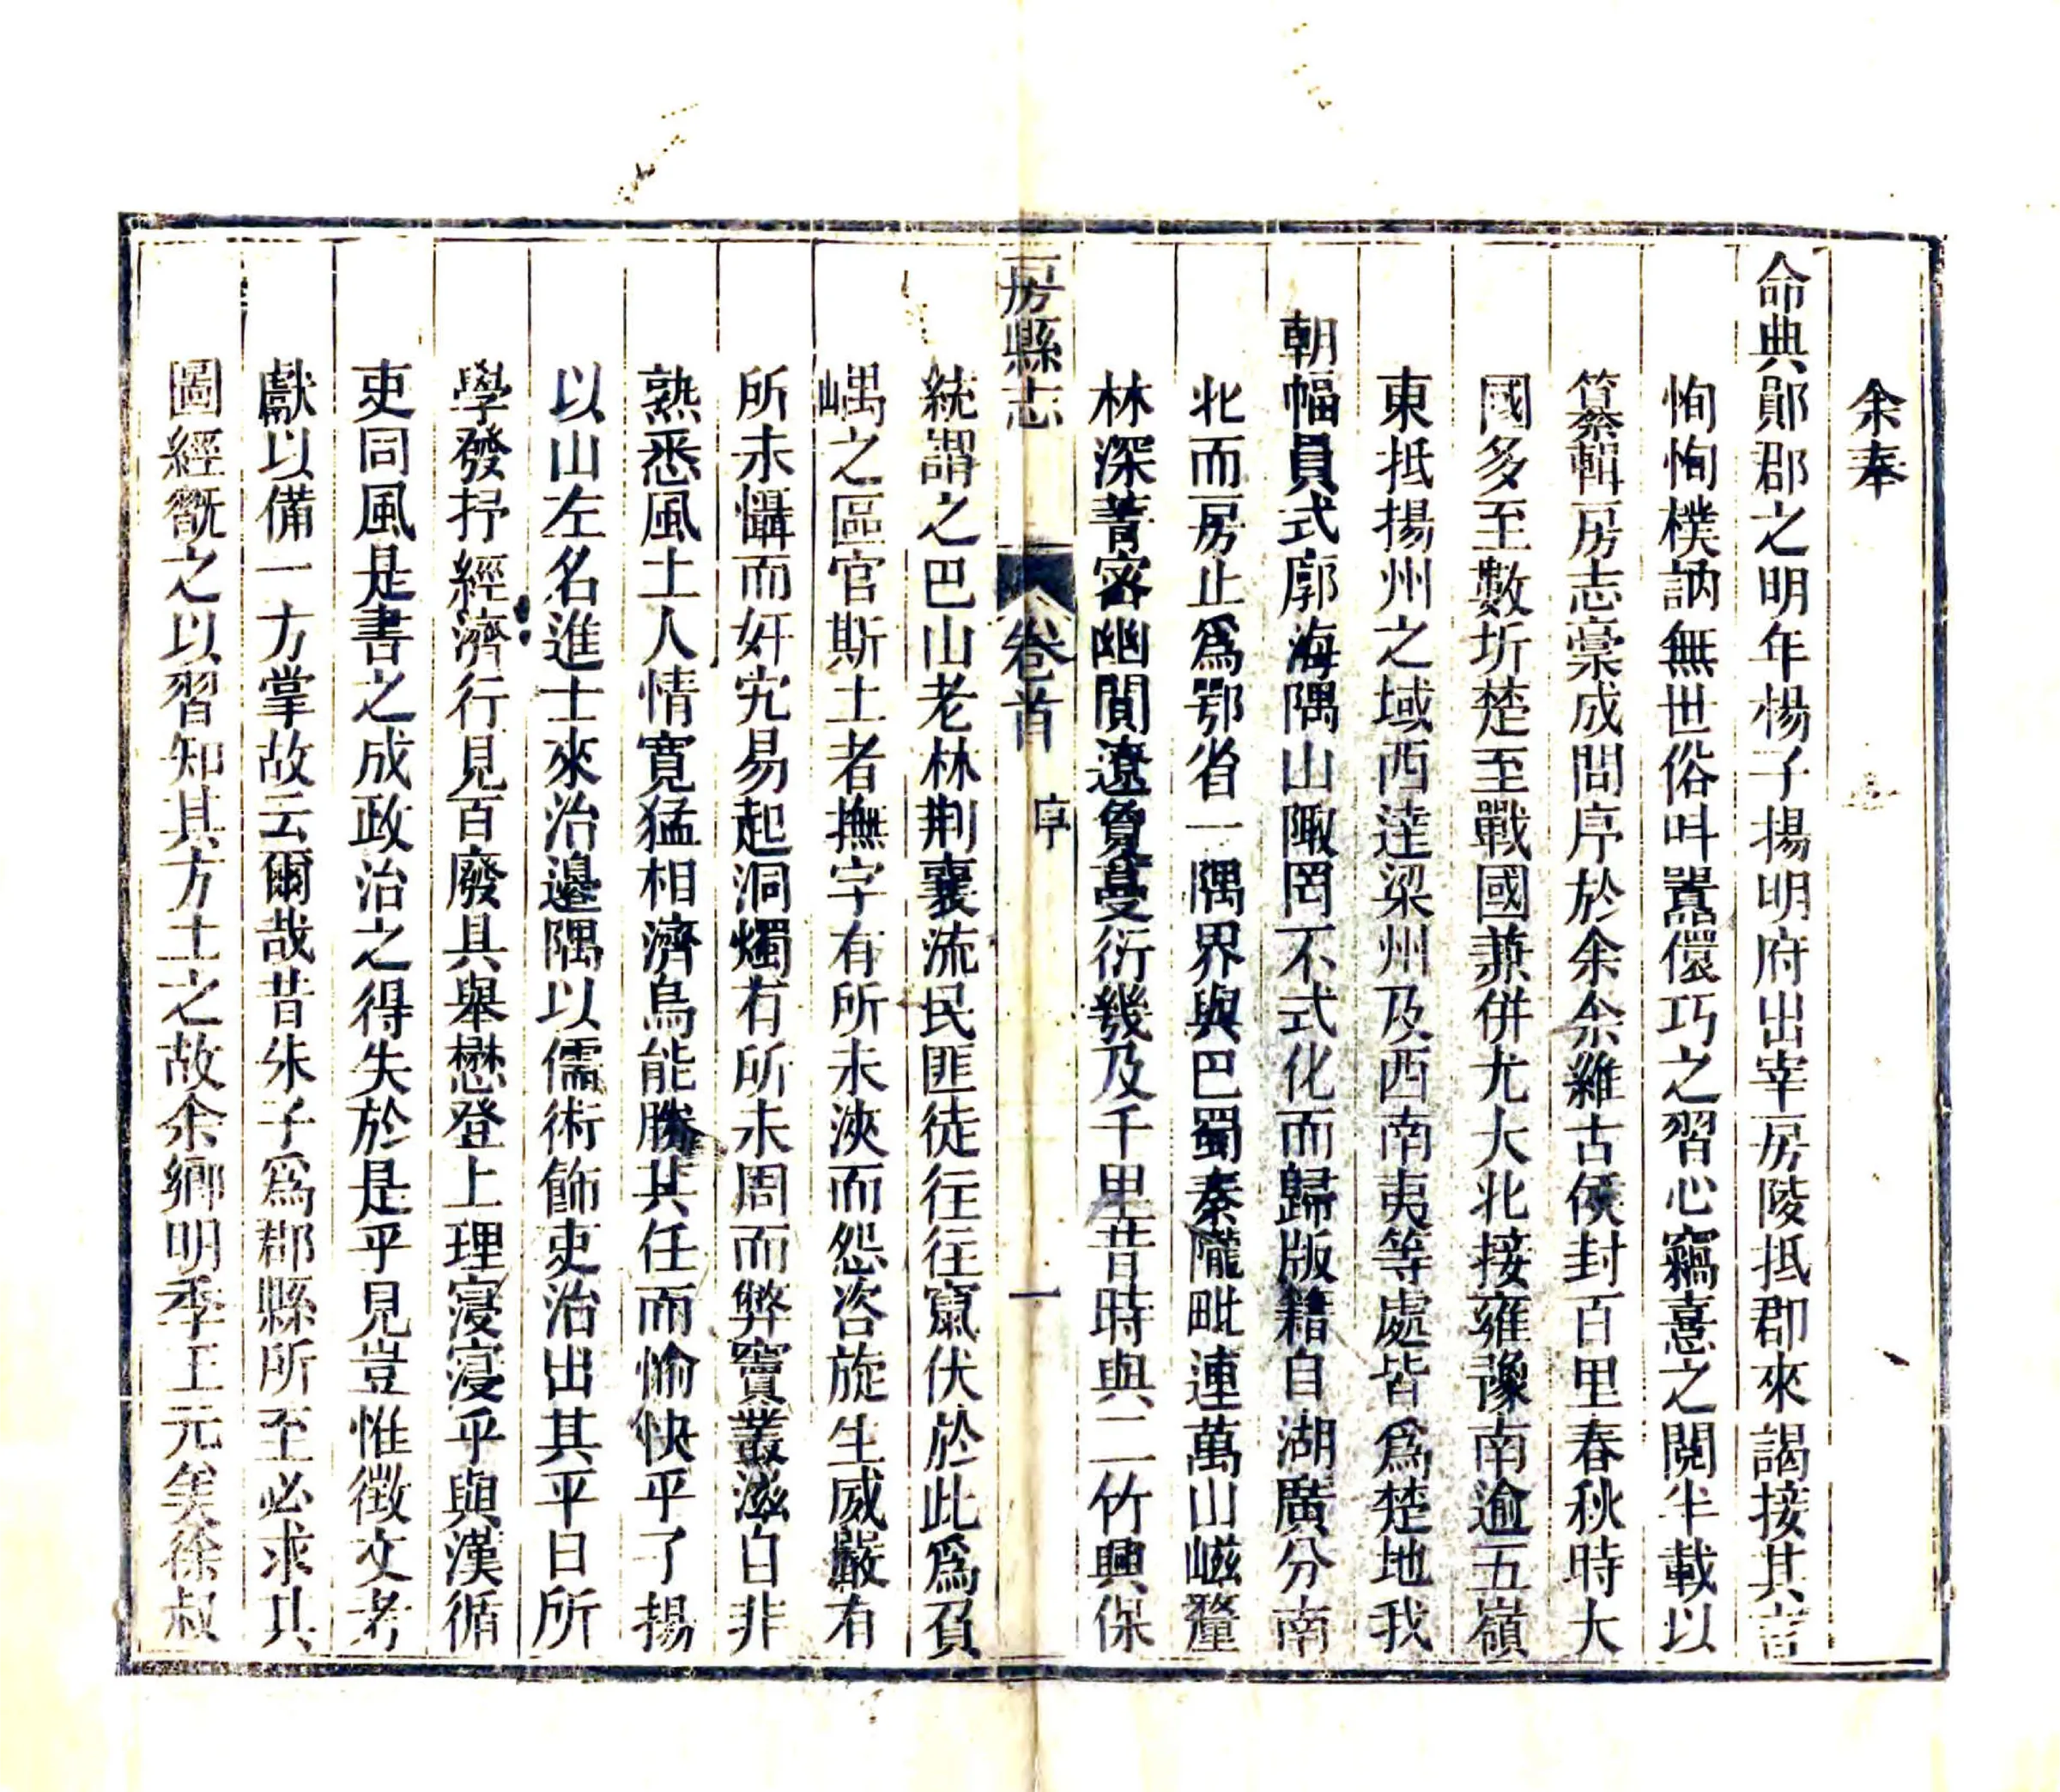 余奉
命典鄖郡之明年楊子揚明府出宰房陵抵郡來謁接其言
恂恂樸訥無世俗叫囂儇巧之習心竊憙之閱半載以
篹輯房志稾成問序於余余維古侯封百里春秋時大
國多至數圻楚至戰國兼併尤大北接雍豫南逾五嶺
東抵揚州之域西逹梁州及西南夷等處皆爲楚地我
朝幅員式廓海隅山陬罔不式化而歸版籍自湖廣分南
北而房止爲鄂省一隅界與巴蜀秦隴毗連萬山嵫𨤲
林深菁密幽閒遼敻蔓衍幾及千里昔時與二竹興保
房縣志 卷首 序 一
統謂之巴山老林荆襄流民匪徒往往竄伏於此爲負
嵎之區官斯土者撫字有所未浹而怨咨旋生威嚴有
所未懾而奸宄易起洞燭有所未周而弊竇叢滋自非
熟悉風土人情寛猛相濟烏能勝其任而愉快乎了揚
以山左名進士來治邊隅以儒術飾吏治出其平日所
學發抒經濟行見百廢具舉懋登上理寖寖乎與漢循
吏同風是書之成政治之得失於是乎見豈惟徵文考
獻以備一方掌故云爾哉昔朱子爲郡縣所至必求其
圖經翫之以習知其方土之故余鄉明季王元美徐叔